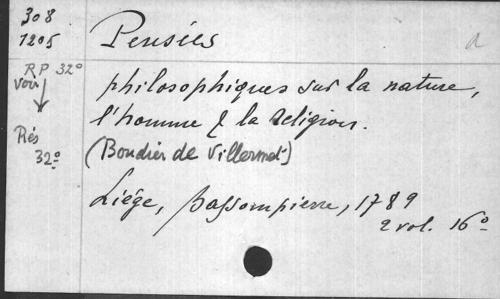 308
1205
Pensées
a
RP 32°
Voir
philosophiques sur la nature,
l'homme & la religion.
Rés
32°
(Boudier de Villermet)
Liége, Bassompierre, 1789
2 vol. 16°